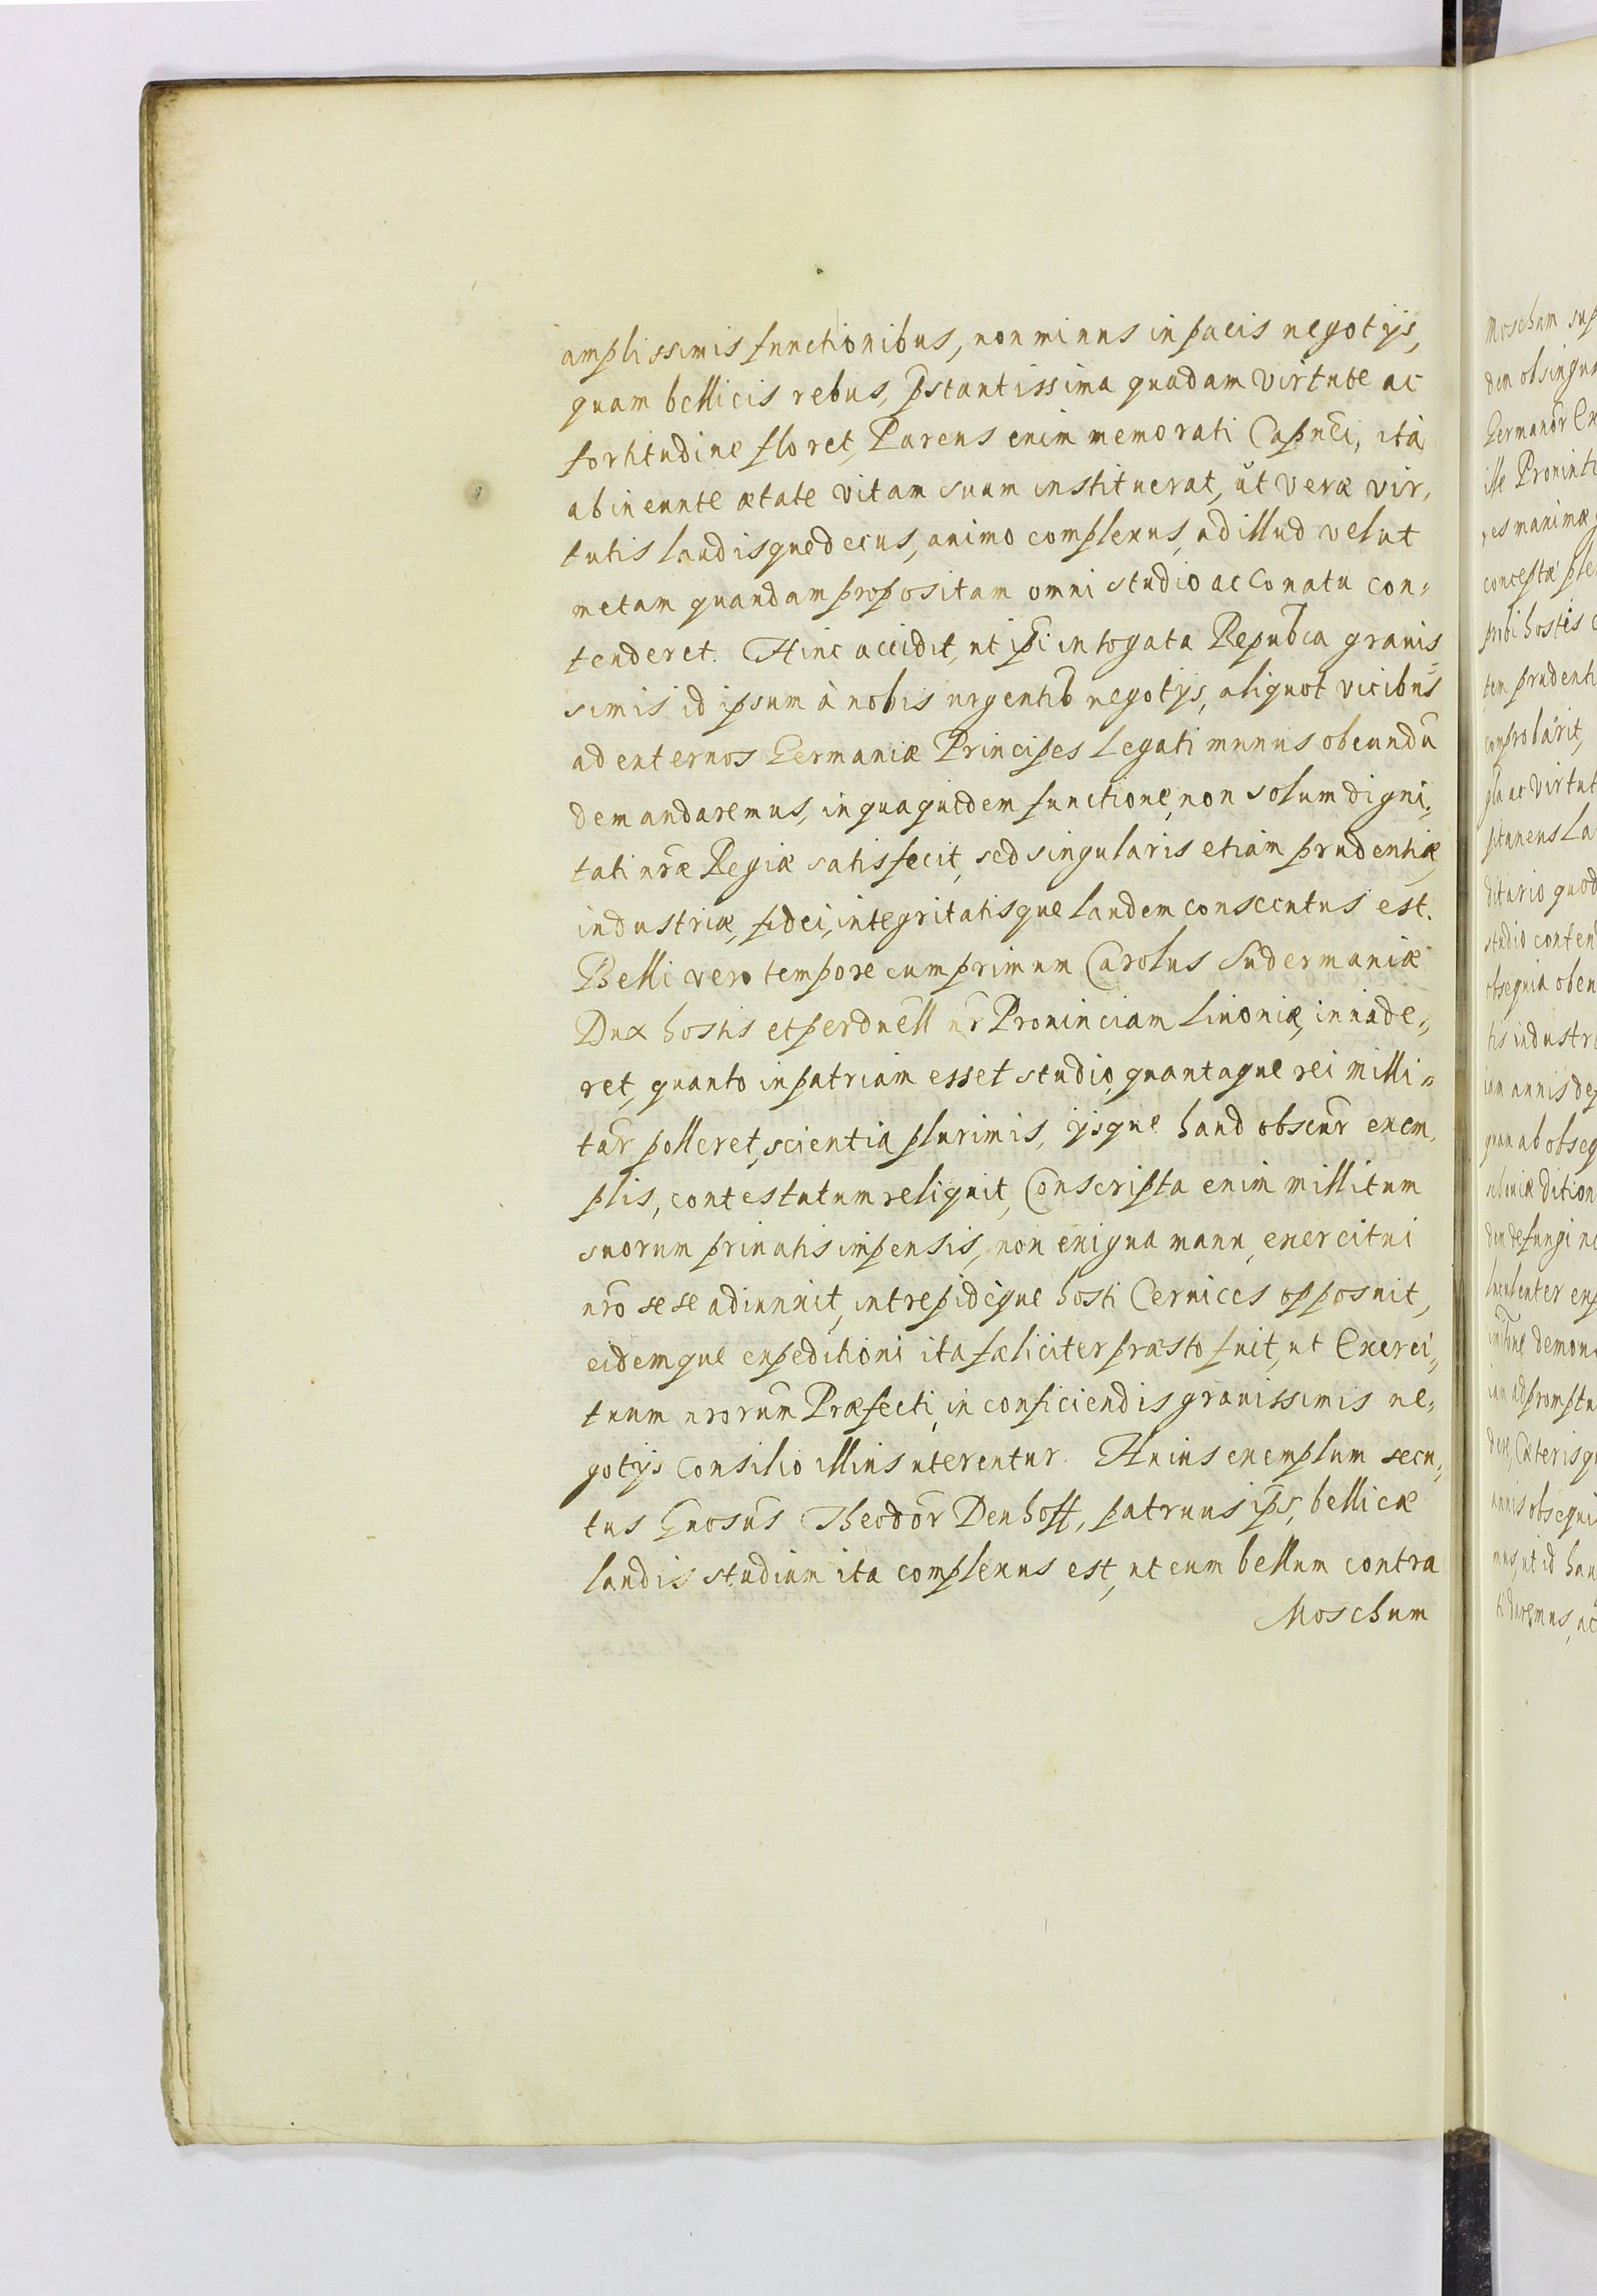 amplissimis functionibus, non minus in pacis negotÿs,
quam bellicis rebus, p̃stantissima quadam virtute ac
fortitudine floret, Parens enim memorati Capnẽi, ità
ab ineunte ætate vitam suam instituerat, ut veræ vir,
tutis laudisque decus, animo complexus, ad illud velut
metam quandam propositam omni studio ac Conatu con„
tenderet. Hinc accidit, ut ip̃i in togata Repub̃ca grauis„
simis id ipsum à nobis urgentib̃ negotÿs, aliquot vicibus
ad externos Germaniæ Principes Legati munus obeundũ
demandaremus, in qua quidem functione, non solum digni„
tati nr̃æ Regiæ satisfecit, sed singularis etiam prudentiæ,
industriæ, fidei, integritatisque laudem consecutus est.
Belli vero tempore cum primum Carolus Sudermaniæ
Dux hostis et perduell̃ nr̃ Prouinciam Liuoniæ, inuade„
ret, quanto in patriam esset studio, quantaque rei milli„
tar̃ polleret, scientia plurimis, ÿsque haud obscur̃ exem,
plis, contestatum reliquit, Conscripta enim millitum
suorum priuatis impensis, non exigua manu, exercitui
nr̃o sese adiunxit, intrepideque hosti Ceruices opposuit,
eidemque expeditioni ita fæliciter præsto fuit, ut Exerci„
tuum nrorum̃ Præfecti, in conficiendis grauissimis ne„
gotÿs Consilio illius uterentur. Huius exemplum secu,
tus Gnosus̃ Theodor̃ Denhoff, patruus ip̃s, bellicæ
laudis studium ita complexus est, ut eum bellum contra
Moschum
Moschum sup
dem ob singu
Germanor̃ Ex
ille Prouinti
res maximæ
conceptæ ple
hostis
tem prudenti
comprobârit,
ac virtut
La
ditario quod
studio conten
obsequia obeu
tis industri
annis
quam ab obseq
dition
defungi
luculenter exp
demon
Cæteris
annis obsequi
ut id hau
ac